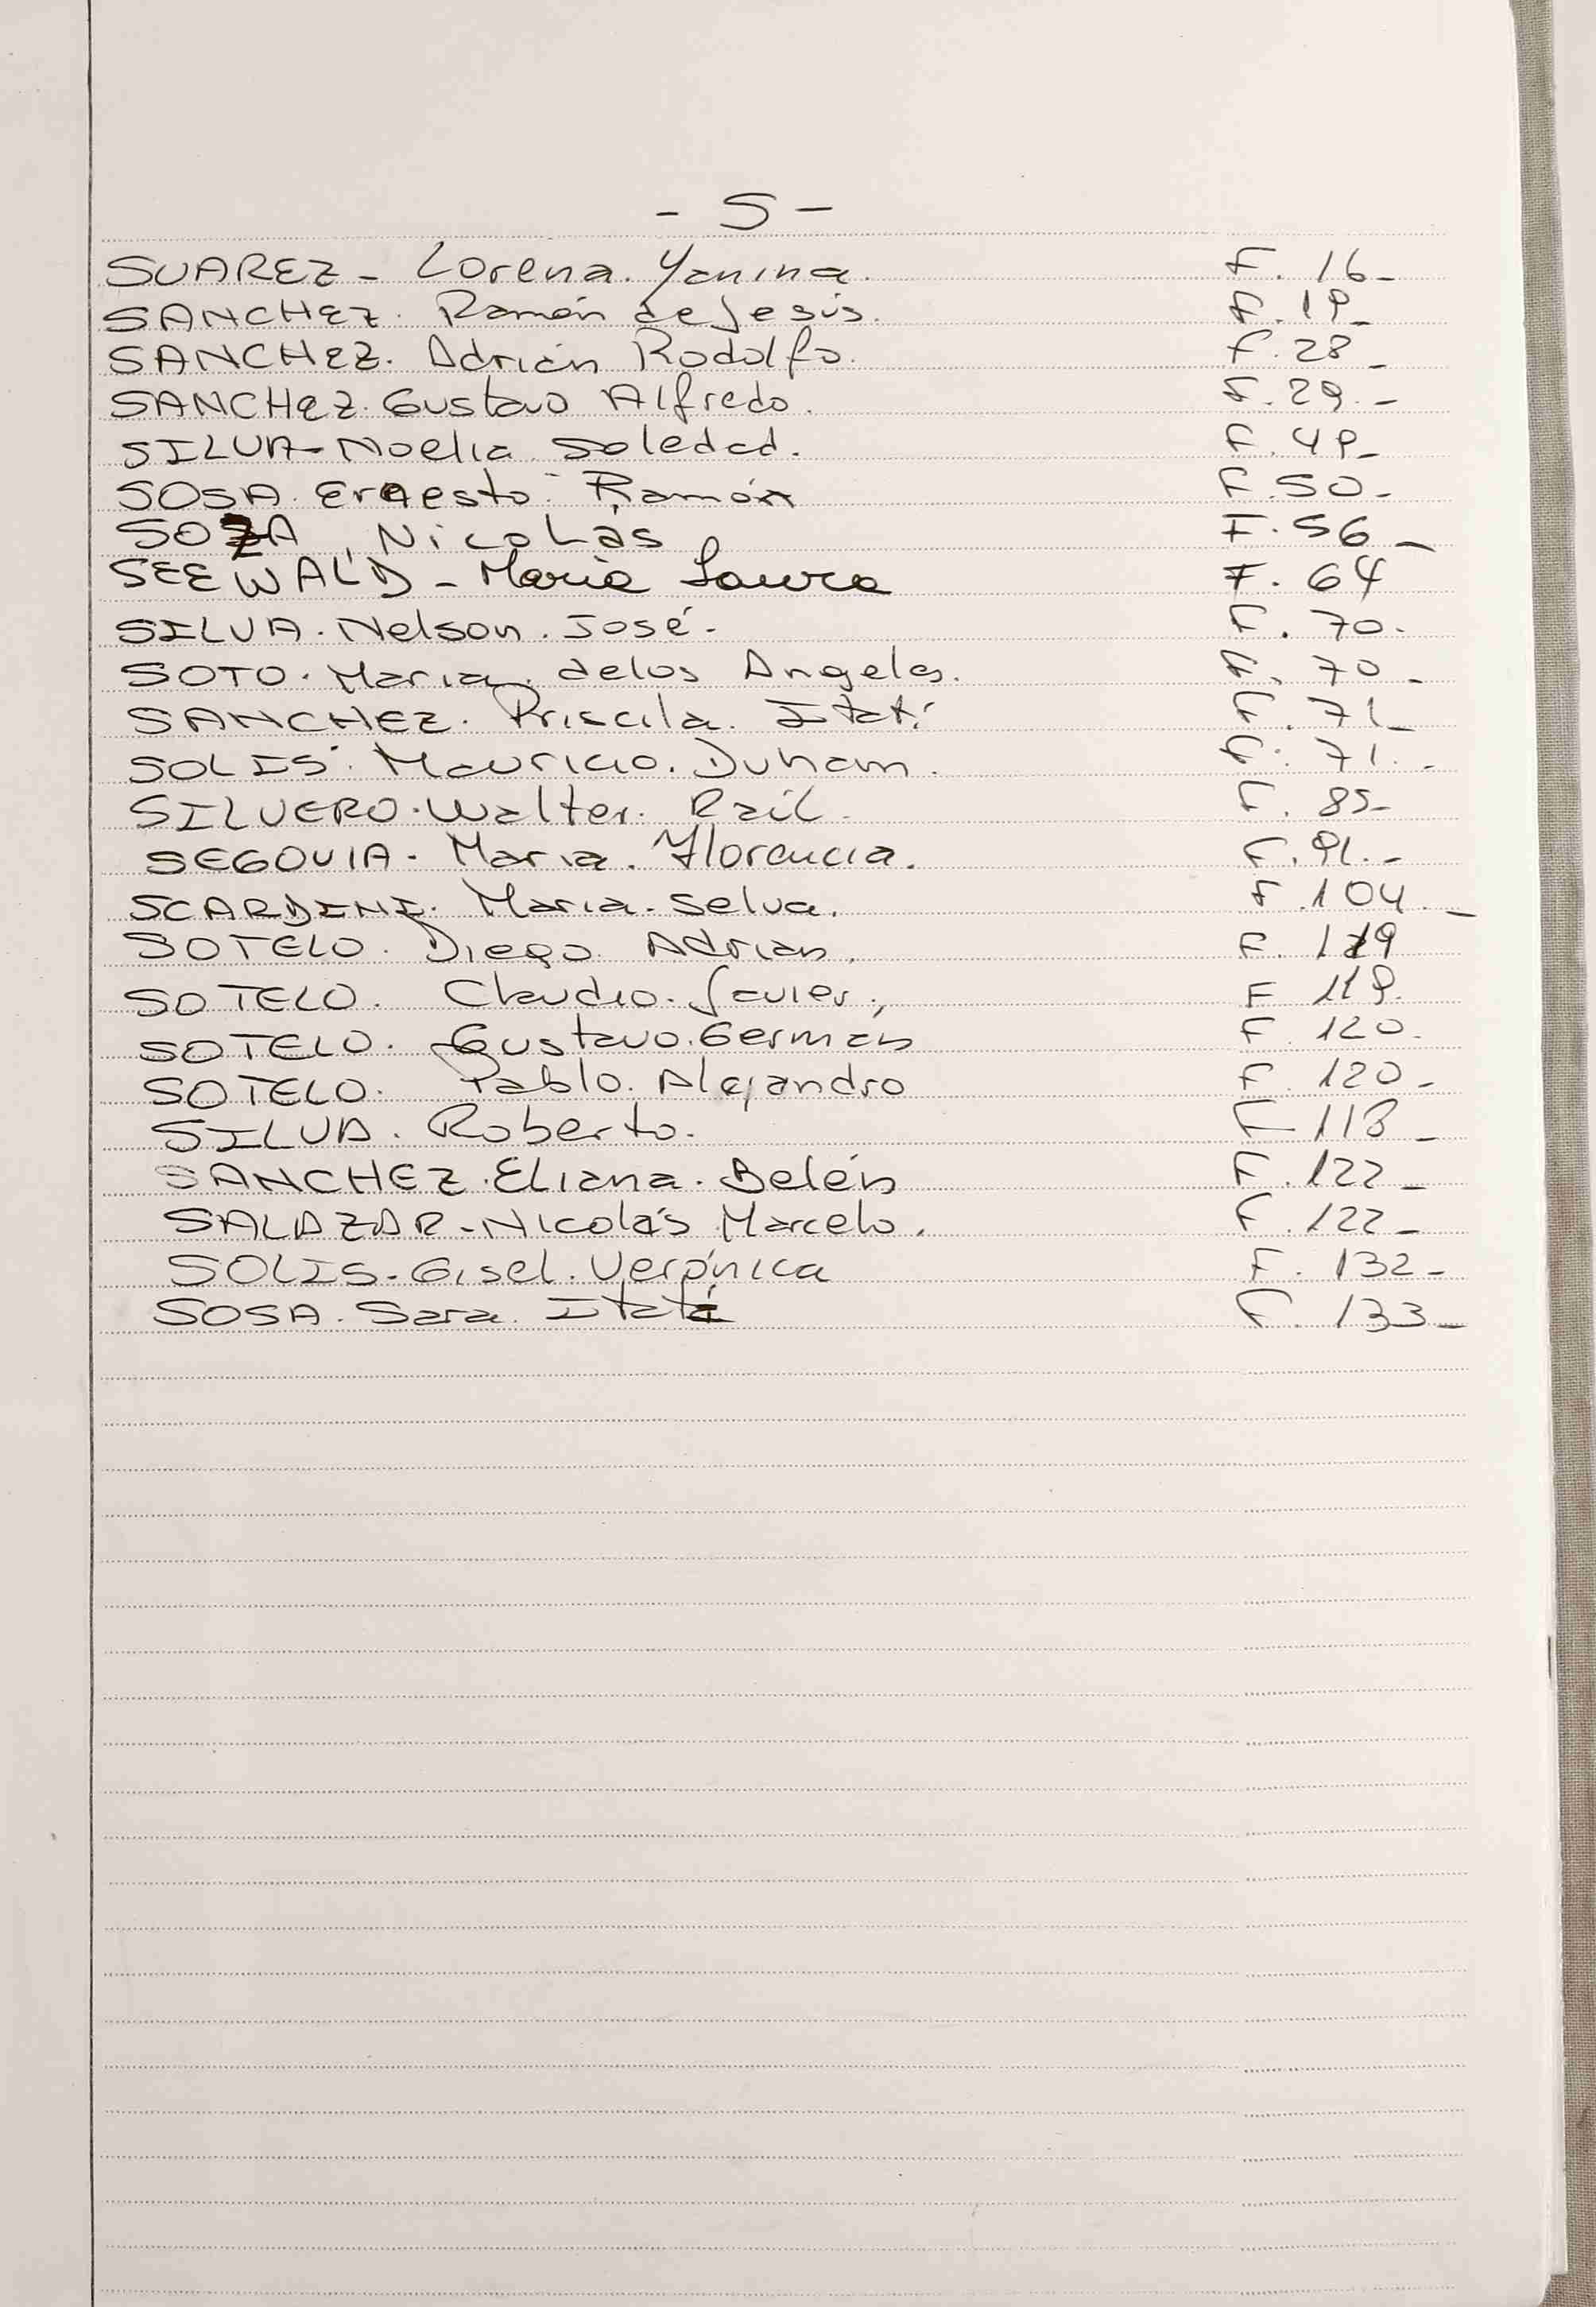 - S -
SUAREZ - Lorena. Yanina. F. 16-
SANCHEZ. Ramón de Jesús. F. 19-
SANCHEZ. Adrián Rodolfo. F. 28-
SANCHEZ. Gustavo Alfredo. F. 29.-
SILVA-Noelia Soledad. F. 49-
SOSA. Ernesto. Ramón F. 50-
SOZA, Nicolás F. 56-
SEEWALD - María Laura F. 64
SILVA. Nelson. José. F. 70-
SOTO. Maria. de los Angeles. F. 70-
SANCHEZ. Priscila. Itatí F. 71-
SOLIS. Mauricio. Duham. F. 71.-
SILVERO. Walter. Raúl. F. 85-
SEGOVIA. Maria. Florencia. F. 91.-
SCARDINI. Maria. Selva. F. 104.-
SOTELO. Diego Adrian. F. 119
SOTELO. Claudio. Javier., F 119.
SOTELO. Gustavo. German F. 120.
SOTELO. Pablo. Alejandro F. 120-
SILVA. Roberto. F 118-
SANCHEZ. Eliana. Belén F. 122-
SALAZAR-Nicolás Marcelo. F. 122-
SOLIS-Gisel. Verónica F. 132-
SOSA. Sara. Itatí F. 133-